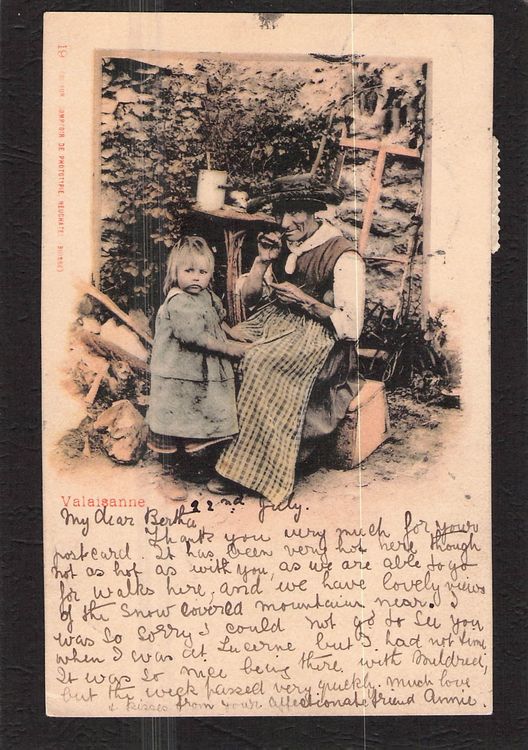 19
COMPTOIR DE PHOTOTYPIE NEUCHATEL
Valaisanne
22nd July.
My dear Bertha
Thank you very much for your
postcard. It has been very hot here though
not as hot as with you, as we are able to go
for walks here, and we have lovely views
of the snow covered mountains near. I
was so sorry I could not go to see you
when I was at Lucerne but I had not time
It was so nice being there with Mildred,
but the week passed very quickly. much love
& kisses from your affectionate friend Annie.